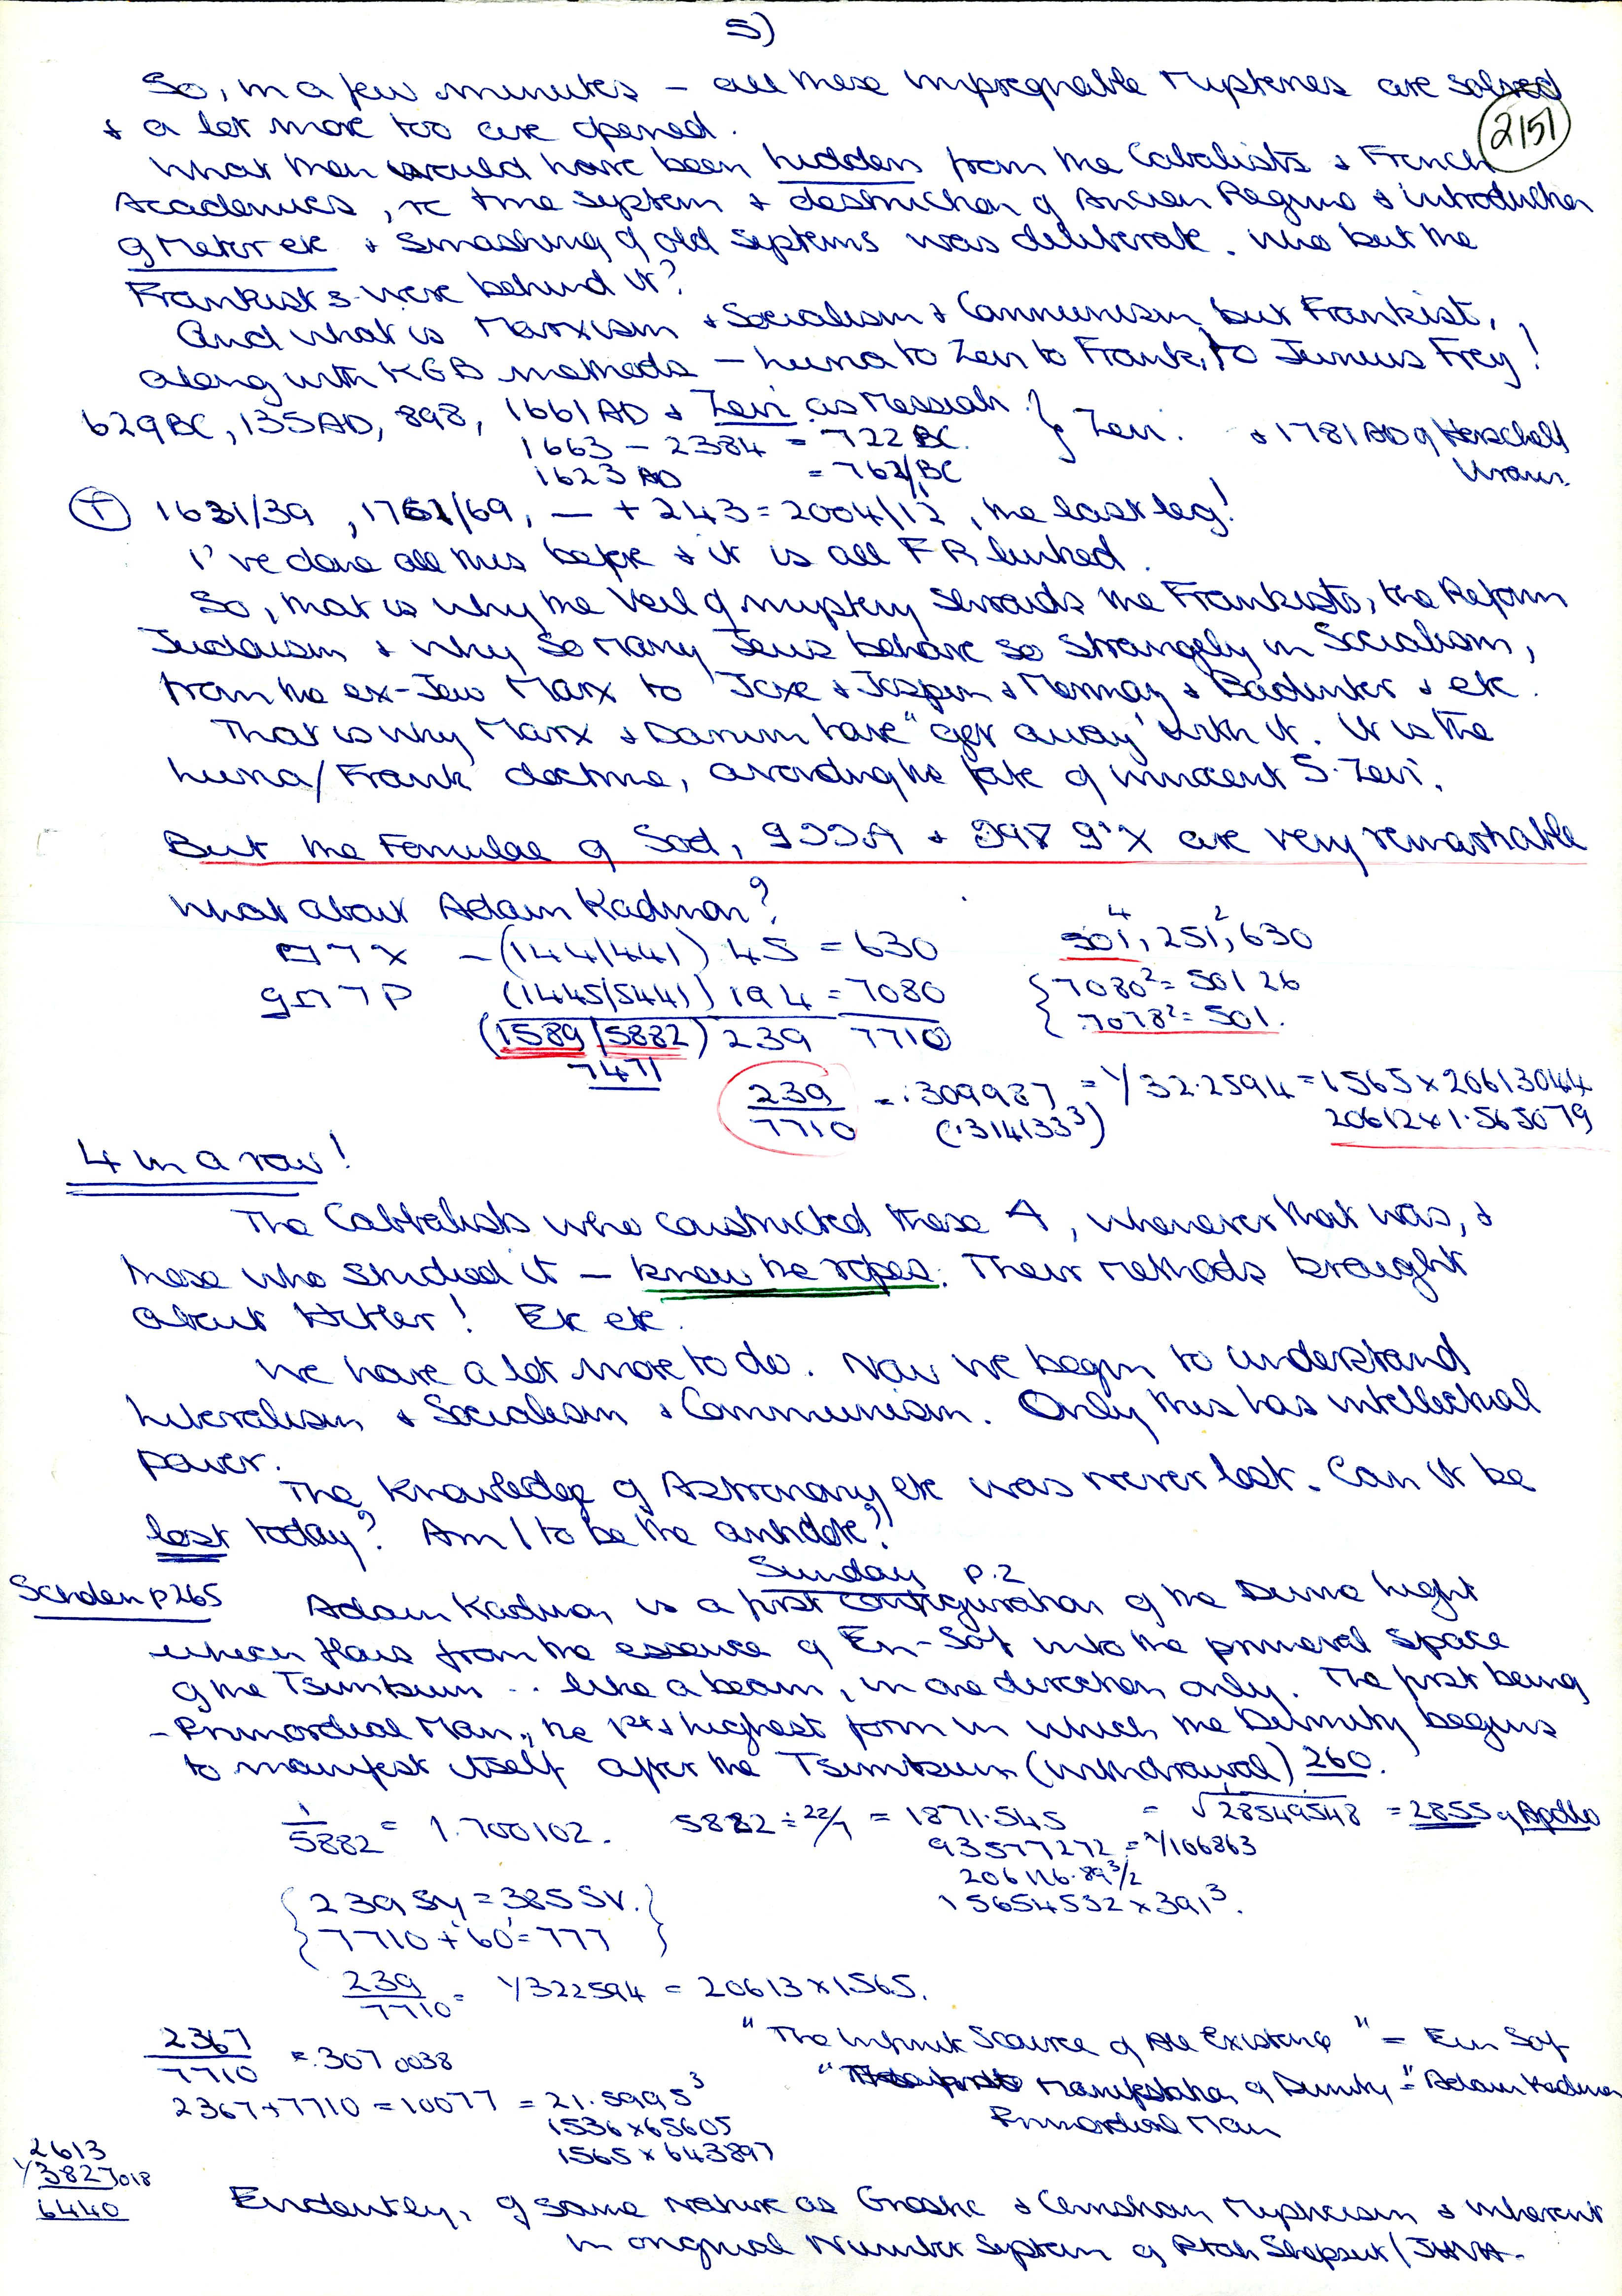 5)
So, in a few minutes – all these impregnable mysteries are solved
& a lot more too are opened.
2151
What then would have been hidden from the Cabalists & French
Academics, re time system & destruction of Ancien Regime & introduction
of Meter etc & smashing of old systems was deliberate. Who but the
Frankists were behind it?
And what is Marxism & Socialism & Communism, but Frankist,
along with KGB methods – Luria to Zevi to Frank, to Junius Frey!
629BC, 135AD, 898, 1661AD & Zevi as Messiah. } Zevi. & 1781AD of Herschel
1663 – 2384 = 722 BC.
1623 AD = 762/1 BC
Uranus.
1631/39, 1761/69, – + 243 = 2004/12, the last leg!
I've done all this before & it is all FR linked.
So, that is why the veil of mystery shrouds the Frankists, the Reform
Judaism & why so many Jews behave so strangely in Socialism,
from the ex-Jew Marx to Joxe & Jospin & Mermaz & Badinter & etc.
That is why Marx & Darwin have "got away" with it. It is the
Luria/Frank doctrine, avoiding the fate of innocent S. Zevi.
But the Formulae of Sod, & are very remarkable
What about Adam Kadmon?
– (144/441) 45 = 630
(1445/5441) 194 = 7080
(1589/5882) 239 7710
7471
501, 251², 630
7080² = 50126
7078² = 501.
239/7710 = .309987 = 1/32.2594 = 1565 x 20613044
(.314133³) 20612 x 1.565079
4 in a row!
The Cabbalists who constructed these 4, whenever that was, &
those who studied it – knew the ropes. Their methods brought
about Hitler! Etc etc.
We have a lot more to do. Now we begin to understand
Liberalism & Socialism & Communism. Only this has intellectual
power.
The knowledge of Astronomy etc was never lost. Can it be
lost today? Am I to be the antidote?
Sunday p.2
p265 Adam Kadmon is a first configuration of the Divine light
which flows from the essence of En-Sof into the primeval space
of the Tsimtsum .. like a beam, in one direction only. The first being
– Primordial Man, the 1st & highest form in which the Divinity begins
to manifest itself after the Tsimtsum (withdrawal) 260.
1/5882 = 1.700102. 5882 ÷ 22/7 = 1871.545 = √28549548 = 2855 of Apollo
93577272 = 1/106863
206116.89 3/2
15654532 x 391³.
{ 239 Sy = 385 SV. }
{ 7710 + 60 = 777 }
239/7710 = 1/322594 = 20613 x 1565.
2367/7710 = .3070038
"The Infinite Source of All Existing" = Ein Sof
2367 + 7710 = 10077 = 21.5995³
Manifestation of Divinity = "Adam Kadmon
1536 x 65605
Primordial Man
1565 x 643897
2613
1/3827018
6440
Evidently, of same nature as Gnostic & Christian Mysticism & inherent
in original Number System of Ptah Shepsut / JHVH.